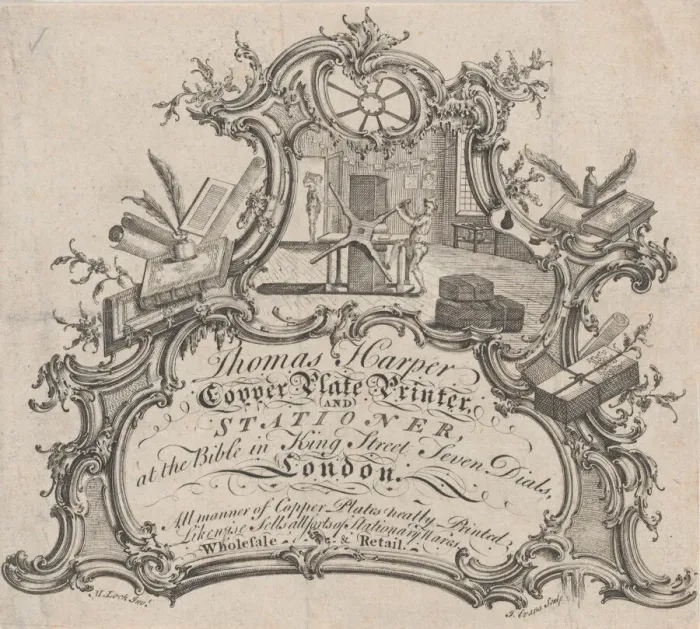 Thomas Harper
Copper Plate Printer,
AND
STATIONER,
at the Bible in King Street Seven Dials,
London.
All manner of Copper-Plates neatly-Printed
Likewise Sells all sorts of Stationary Wares
Wholesale & Retail.
M. Lock Inv.ᵗ
J. Evans Sculp.